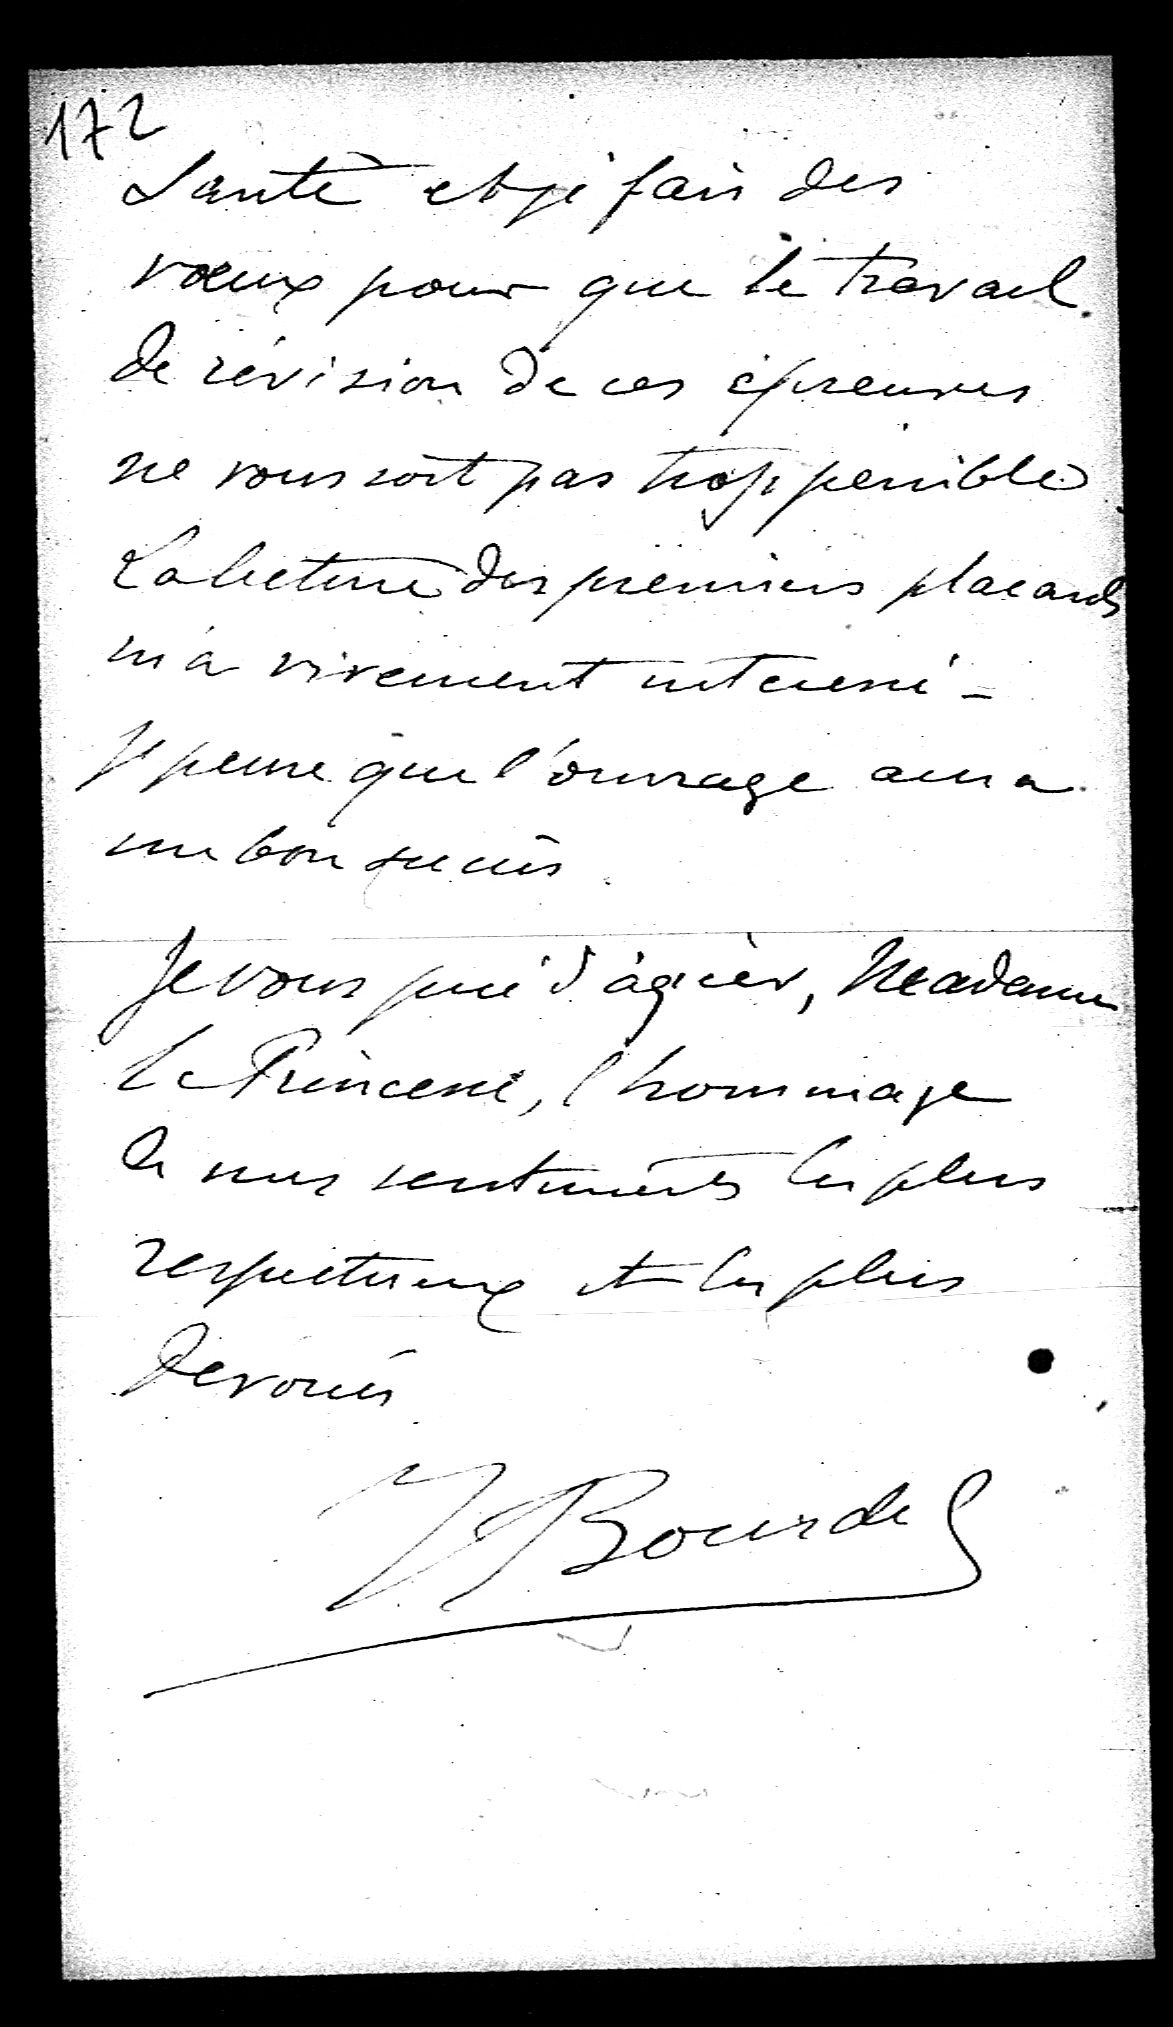 172
Santé et je fais des
vœux pour que le travail
de révision de ces épreuves
ne vous soit pas trop pénible
La lecture des premiers placards
m'a vivement intéressé -
Je pense que l'ouvrage aura
un bon succès.
Je vous prie d'agréer, Madame
la Princesse, l'hommage
de mes sentiments les plus
respectueux et les plus
dévoués
J Bourdel